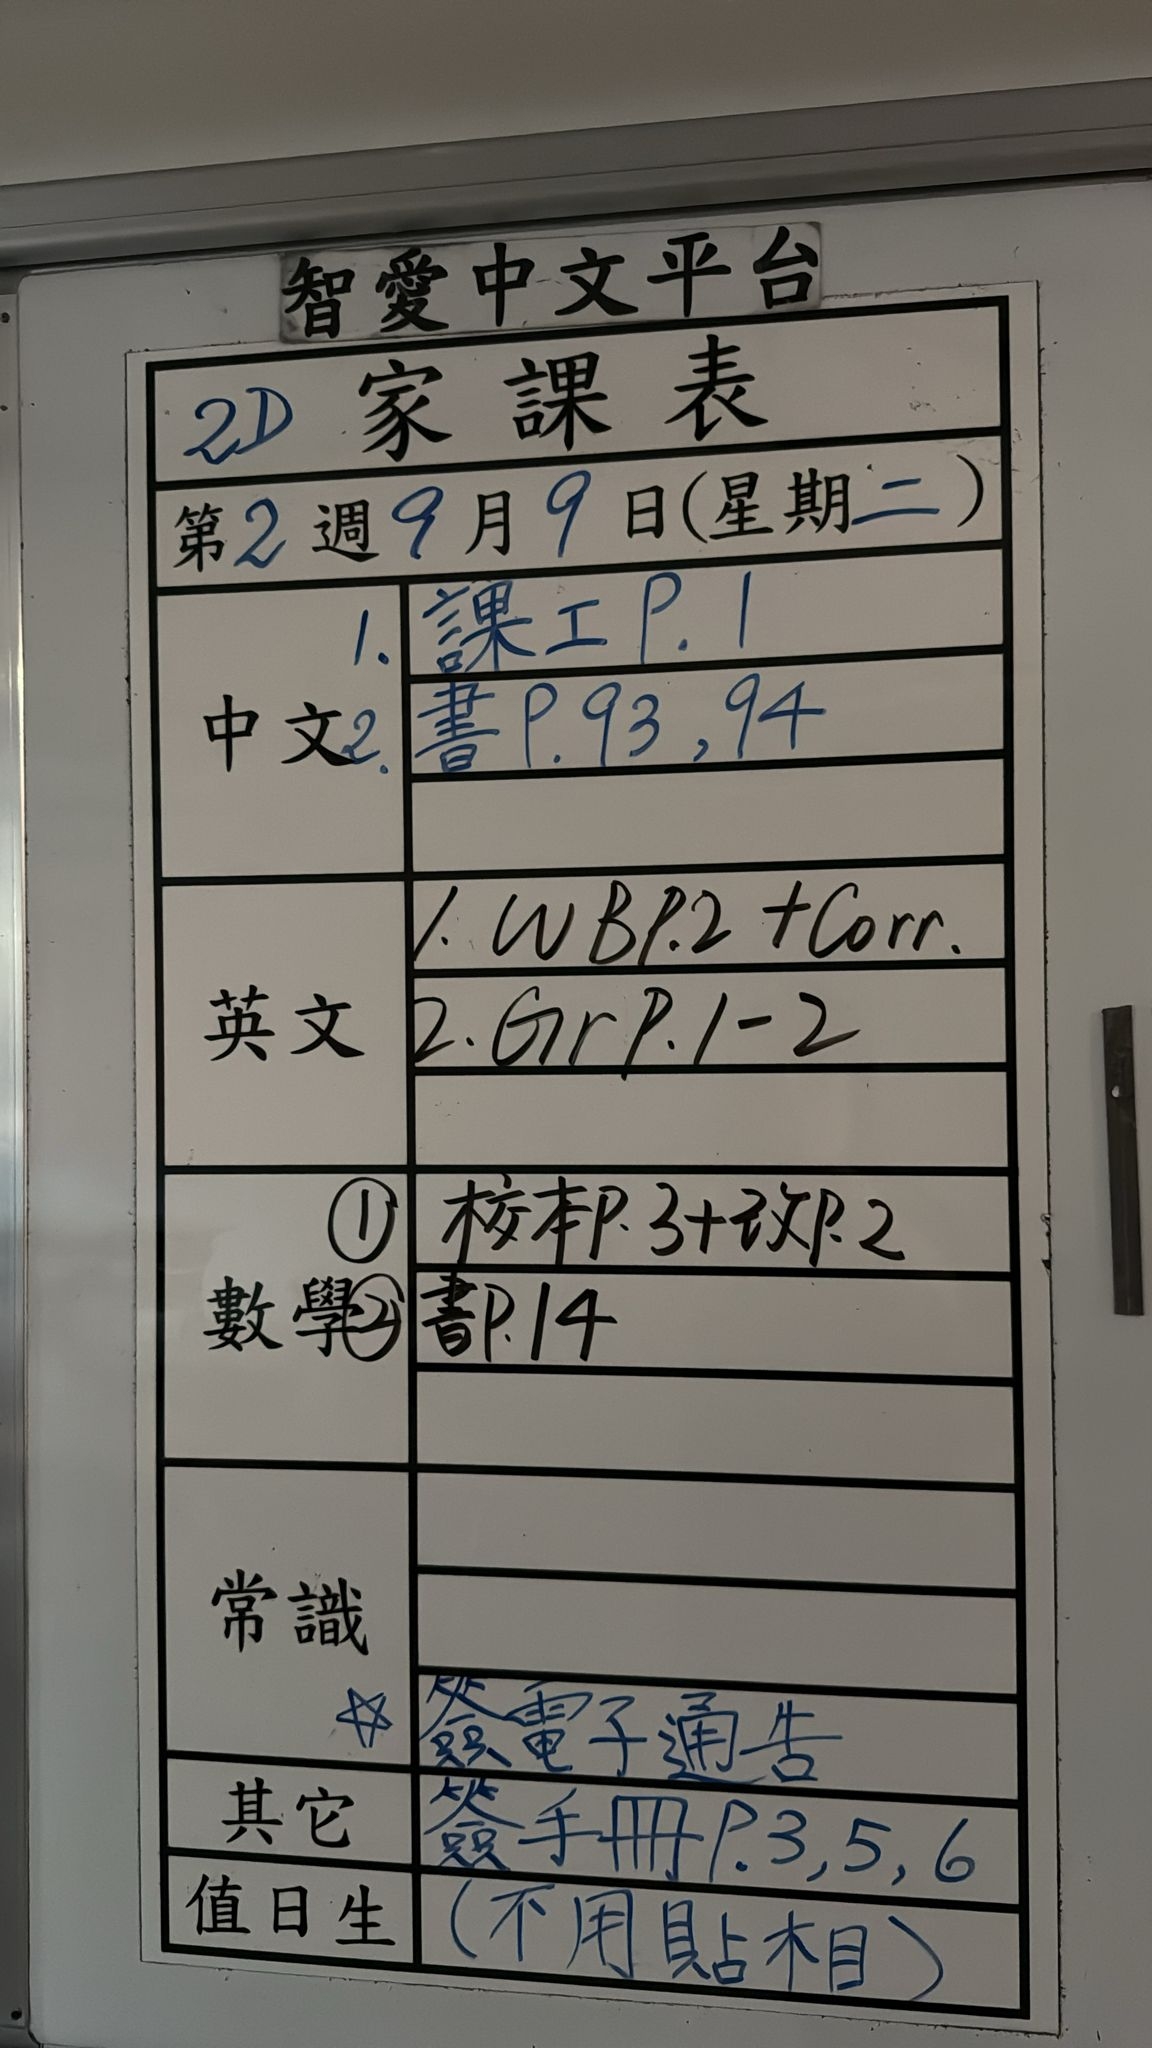 智愛中文平台
2D 家課表
第2週9月9日(星期二)
中文
1. 課工P.1
2. 書P.93,94
英文
1. WBP.2 +Corr.
2. GrP.1-2
數學
① 校本P.3+改P.2
② 書P.14
常識
☆ 簽電子通告
其它
簽手冊P.3,5,6
值日生
(不用貼相)